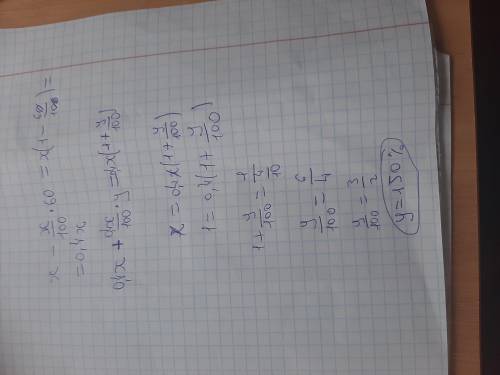 x - x/100 · 60 = x(1 - 60/100) =
= 0,4x
0,4x + 0,4x/100 · y = 0,4x(1 + y/100)
x = 0,4x(1 + y/100)
1 = 0,4(1 + y/100)
1 + y/100 = 1/(4/10)
y/100 = 6/4
y/100 = 3/2
y = 150%